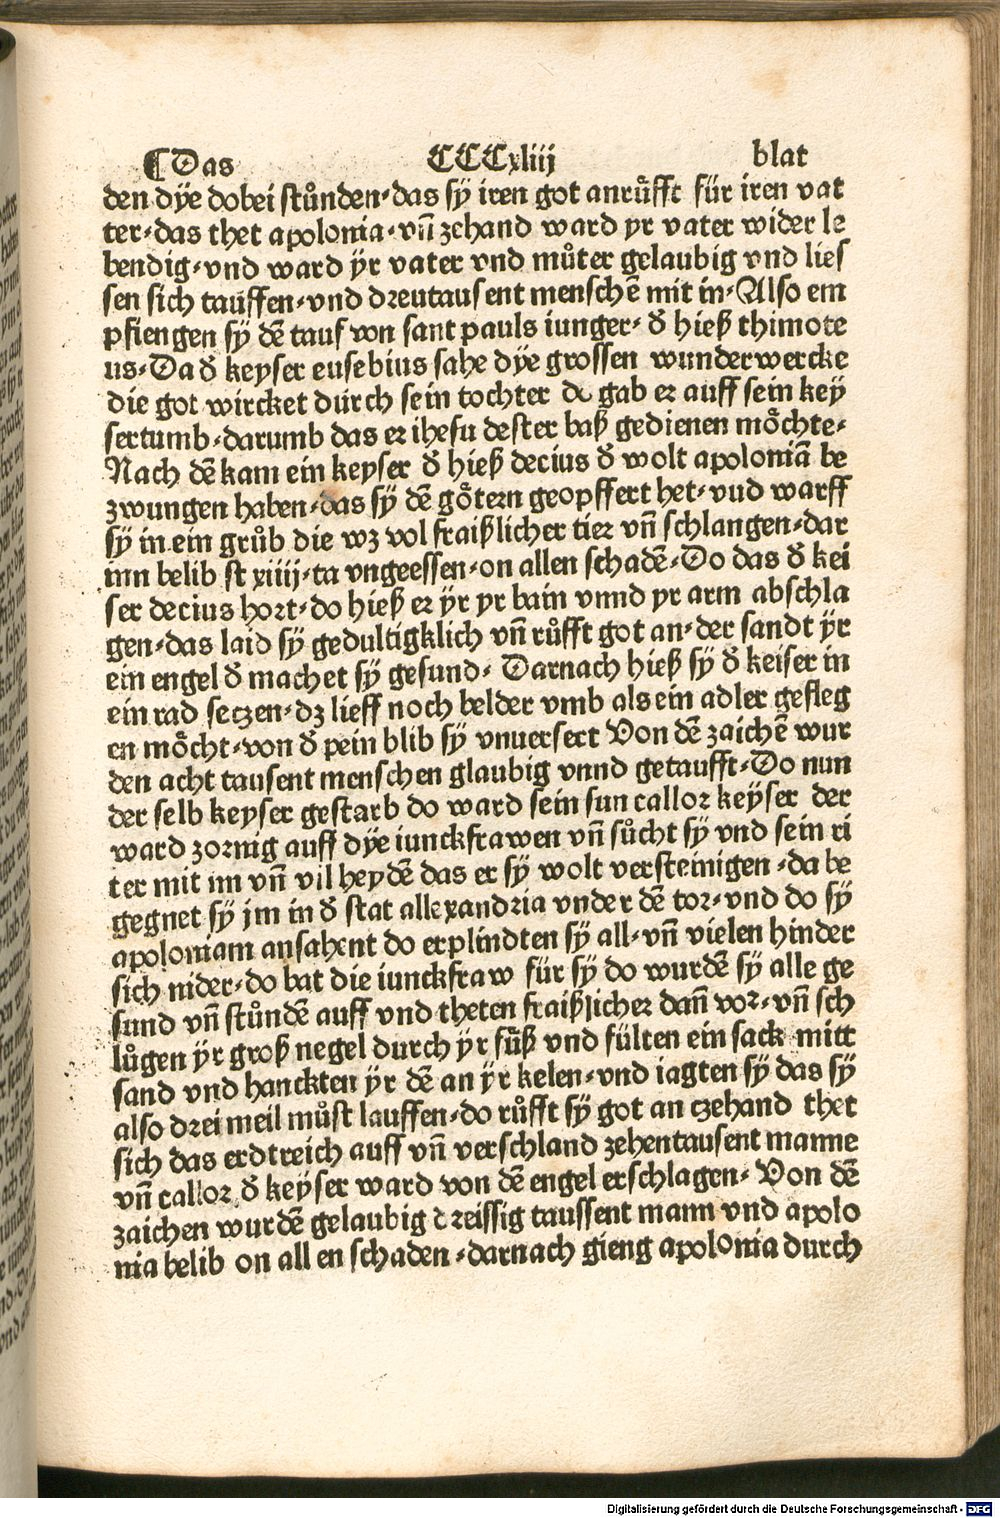 ¶Das CCCxliij blat
den dÿe dobei stůnden·das sÿ iren got anrůfft für iren vat
ter·das thet apolonia·vñ zehand ward yr vater wider le
bendig·vnd ward ÿr vater vnd můter gelaubig vnd lies
sen sich tauffen·vnd dreutausent menschē mit in·Also em
pfiengen sÿ dē tauf von sant pauls iunger·đ hieß thimote
us·Da đ keyser eusebius sahe dÿe grossen wunderwercke
die got wircket durch sein tochter do gab er auff sein key
sertumb·darumb das er ihesu dester baß gedienen mӧchte·
Nach dē kam ein keyser đ hieß decius đ wolt apoloniā be
zwungen haben·das sÿ dē gӧtern geopffert het·vnd warff
sÿ in ein grůb die wz vol fraißlicher tier vñ schlangen·dar
inn belib st xiiij·ta vngeessen·on allen schadē·Do das đ kei
ser decius hort·do hieß er ÿr yr bain vnnd yr arm abschla
gen·das laid sÿ gedultigklich vñ růfft got an·der sandt ÿr
ein engel đ machet sÿ gesund· Darnach hieß sÿ đ keiser in
ein rad setzen·dz lieff noch belder vmb als ein adler gefleg
en mӧcht·von đ pein blib sÿ vnuersert Von dē zaichē wur
den acht tausent menschen glaubig vnnd getaufft·Do nun
der selb keyser gestarb do ward sein sun callor keÿser der
ward zornig auff dÿe iunckfrawen vñ sůcht sÿ vnd sein ri
ter mit im vñ vil heydē das er sÿ wolt versteinigen·da be
gegnet sÿ jm in đ stat allexandria vnder dē tor·vnd do sÿ
apoloniam ansahent do erplindten sÿ all·vñ vielen hinder
sich nider·do bat die iunckfraw für sÿ do wurdē sÿ alle ge
sund vñ stůndē auff vnd theten fraißlicher dañ vor·vñ sch
lůgen ÿr groß negel durch ÿr fůß vnd fülten ein sack mitt
sand vnd hanckten ÿr dē an ÿr kelen·vnd iagten sÿ das sÿ
also drei meil můst lauffen·do růfft sÿ got an czehand thet
sich das erdtreich auff vñ verschland zehentausent manne
vñ callor đ keÿser ward von dē engel erschlagen· Von dē
zaichen wurdē gelaubig dreissig taussent mann vnd apolo
nia belib on allen schaden·darnach gieng apolonia durch
Digitalisierung gefördert durch die Deutsche Forschungsgemeinschaft - DFG